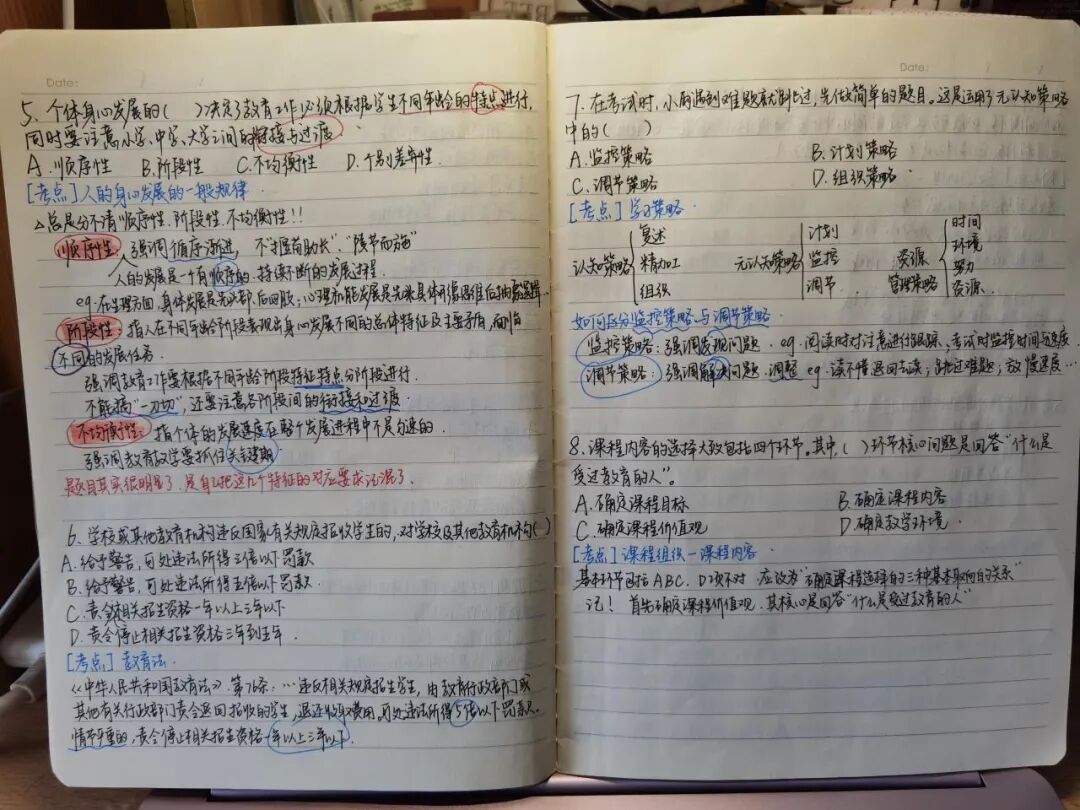 Date:
5. 个体身心发展的( )决定了教育工作必须根据学生不同年龄的特点进行,
同时要注意小学、中学、大学之间的衔接与过渡
A. 顺序性 B. 阶段性 C. 不均衡性 D. 个别差异性.
[考点] 人的身心发展的一般规律.
△总是分不清顺序性. 阶段性. 不均衡性!!
顺序性: 强调循序渐进, 不可"揠苗助长" "陵节而施"
人的发展是一个有顺序的、持续不断的发展过程.
eg. 在生理方面, 身体发展是先头部后四肢, 心理机能发展是先具体形象思维后抽象逻辑…
阶段性: 指人在不同年龄阶段表现出身心发展不同的总体特征及主要矛盾, 面临
不同的发展任务.
强调教育工作要根据不同年龄阶段特征特点分阶段进行.
不能搞"一刀切", 还要注意各阶段间的衔接和过渡.
不均衡性: 指个体的发展速度在整个发展进程中不是匀速的.
强调教育教学要抓住关键期.
题目其实很明显了. 是自己把这几个特征的对应要求记混了.
6. 学校或其他教育机构违反国家有关规定招收学生的, 对学校及其他教育机构( )
A. 给予警告, 可处违法所得三倍以下罚款
B. 给予警告, 可处违法所得五倍以下罚款.
C. 责令相关招生资格一年以上三年以下
D. 责令停止相关招生资格三年到五年.
[考点] 教育法.
《中华人民共和国教育法》. 第76条: …违反相关规定招生学生, 由教育行政部门或
其他有关行政部门责令退回招收的学生, 退还收取费用. 可处违法所得5倍以下罚款.
情节严重的, 责令停止相关招生资格一年以上三年以下.
Date:
7. 在考试时, 小丽遇到难题就跳过, 先做简单的题目。这是运用了元认知策略
中的( )
A. 监控策略 B. 计划策略
C. 调节策略 D. 组织策略.
[考点] 学习策略.
认知策略 { 复述 精加工 组织
元认知策略 { 计划 监控 调节
资源管理策略 { 时间 环境 努力 资源.
如何区分监控策略与调节策略
监控策略: 强调发现问题. eg. 阅读时对注意进行跟踪, 考试时监控时间与速度
调节策略: 强调解决问题. 调整 eg. 读不懂退回去读; 跳过难题; 放慢速度…
8. 课程内容的选择大致包括四个环节。其中, ( )环节核心问题是回答"什么是
受过教育的人"。
A. 确定课程目标 B. 确定课程内容
C. 确定课程价值观 D. 确定教学环境.
[考点] 课程组织—课程内容.
基本环节包括ABC. D项不对. 应改为"确定课程选择的三种基本取向的关系"
记! 首先确定课程价值观. 其核心是回答"什么是受过教育的人"